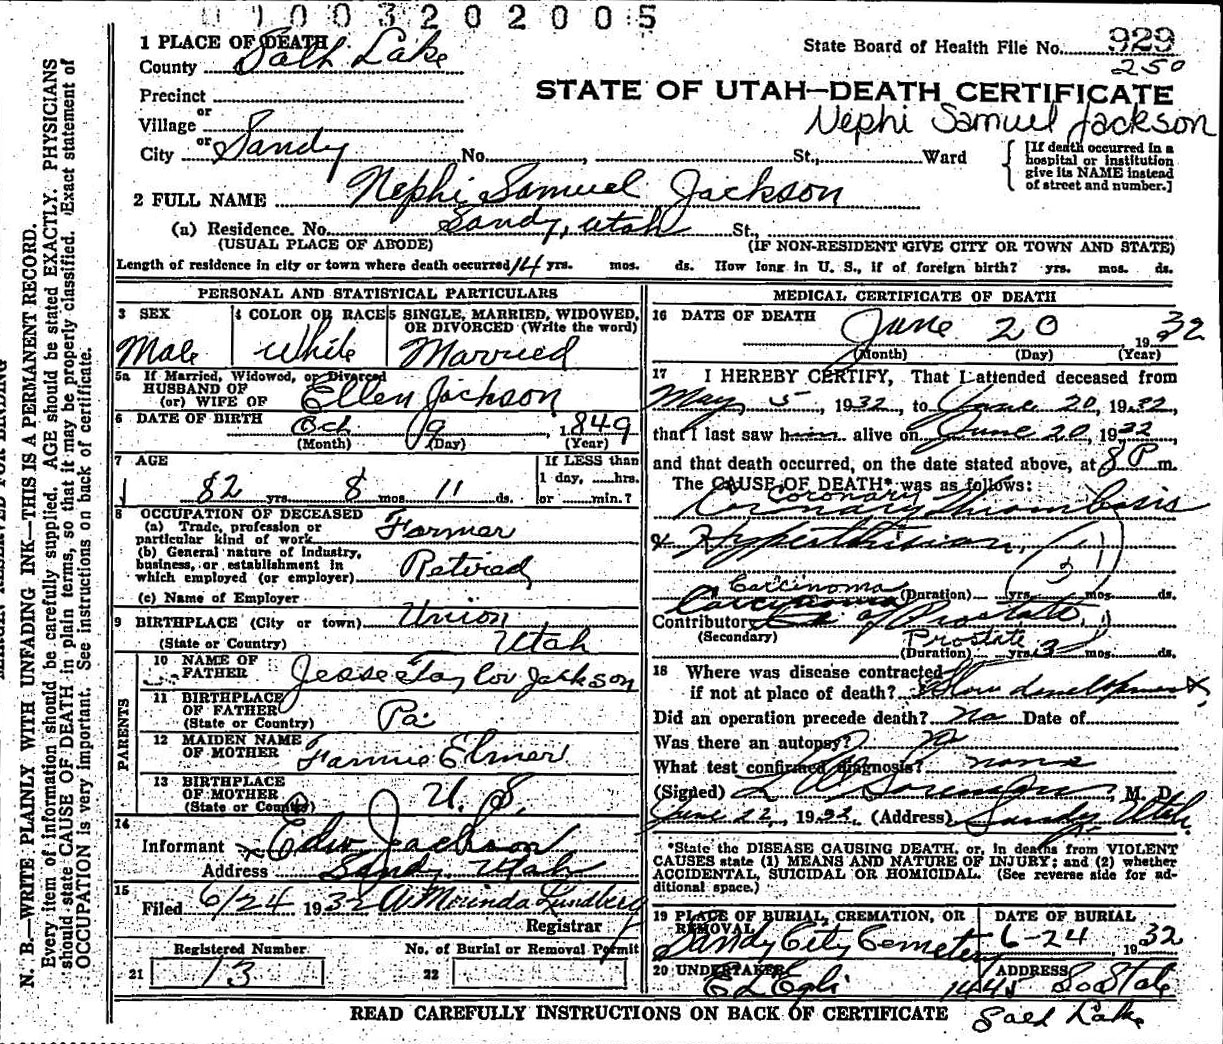 0 1 0 0 3 2 0 2 0 0 5
1 PLACE OF DEATH
State Board of Health File No. 929
County Salt Lake
250
Precinct
STATE OF UTAH—DEATH CERTIFICATE
or
Village
Nephi Samuel Jackson
or
City Sandy No. , St., Ward
[If death occurred in a
hospital or institution
give its NAME instead
of street and number.]
2 FULL NAME Nephi Samuel Jackson
(a) Residence. No. Sandy, Utah St.,
(USUAL PLACE OF ABODE) (IF NON-RESIDENT GIVE CITY OR TOWN AND STATE)
Length of residence in city or town where death occurred 14 yrs. mos. ds. How long in U. S., if of foreign birth? yrs. mos. ds.
PERSONAL AND STATISTICAL PARTICULARS
3 SEX
Male
4 COLOR OR RACE
White
5 SINGLE, MARRIED, WIDOWED,
OR DIVORCED (Write the word)
Married
5a If Married, Widowed, or Divorced
HUSBAND OF
(or) WIFE OF Ellen Jackson
6 DATE OF BIRTH Oct 9, 1849
(Month) (Day) (Year)
7 AGE
82 yrs. 8 mos. 11 ds.
If LESS than
1 day, hrs.
or min.?
8 OCCUPATION OF DECEASED
(a) Trade, profession or
particular kind of work Farmer
(b) General nature of industry,
business, or establishment in
which employed (or employer) Retired
(c) Name of Employer
9 BIRTHPLACE (City or town) Union
(State or Country) Utah
PARENTS
10 NAME OF
FATHER Jesse Taylor Jackson
11 BIRTHPLACE
OF FATHER
(State or Country) Pa.
12 MAIDEN NAME
OF MOTHER Fannie Elmer
13 BIRTHPLACE
OF MOTHER
(State or Country) U. S.
14
Informant Edw Jackson
Address Sandy Utah
15
Filed 6/24 1932 A. Morinda Lundberg
Registrar
Registered Number
21 13
No. of Burial or Removal Permit
22
MEDICAL CERTIFICATE OF DEATH
16 DATE OF DEATH
June 20, 1932
(Month) (Day) (Year)
17 I HEREBY CERTIFY, That I attended deceased from
May 5, 1932, to June 20, 1932,
that I last saw him alive on June 20, 1932,
and that death occurred, on the date stated above, at 8 P m.
The CAUSE OF DEATH* was as follows:
Coronary
Coronary Thrombosis
& Hypertension,
Carcinoma
(Duration) yrs. mos. ds.
Contributory Carcinoma of Prostate,
(Secondary) Prostate
(Duration) yrs. 3 mos. ds.
18 Where was disease contracted
if not at place of death? Slow development,
Did an operation precede death? no Date of
Was there an autopsy? no
What test confirmed diagnosis? none
(Signed) Sorenson, M. D.
June 22, 1932 (Address) Sandy, Utah.
*State the DISEASE CAUSING DEATH, or, in deaths from VIOLENT
CAUSES state (1) MEANS AND NATURE OF INJURY; and (2) whether
ACCIDENTAL, SUICIDAL OR HOMICIDAL. (See reverse side for ad-
ditional space.)
19 PLACE OF BURIAL, CREMATION, OR
REMOVAL
Sandy City Cemetery
DATE OF BURIAL
6-24, 1932
20 UNDERTAKER
E L Egli
ADDRESS
1445 So State
Salt Lake
READ CAREFULLY INSTRUCTIONS ON BACK OF CERTIFICATE
MARGIN RESERVED FOR BINDING
N. B.—WRITE PLAINLY WITH UNFADING INK—THIS IS A PERMANENT RECORD.
Every item of information should be carefully supplied. AGE should be stated EXACTLY. PHYSICIANS
should state CAUSE OF DEATH in plain terms, so that it may be properly classified. Exact statement of
OCCUPATION is very important. See instructions on back of certificate.